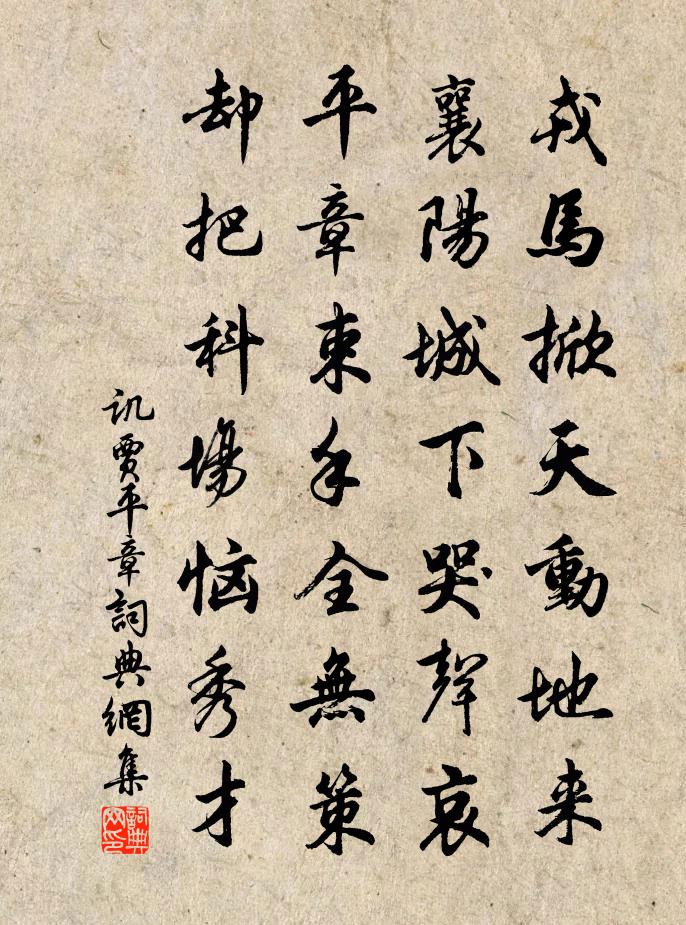 戎馬掀天動地来
襄陽城下哭聲哀
平章束手全無策
却把科場恼秀才
讥賈平章詞典網集
詞典网印